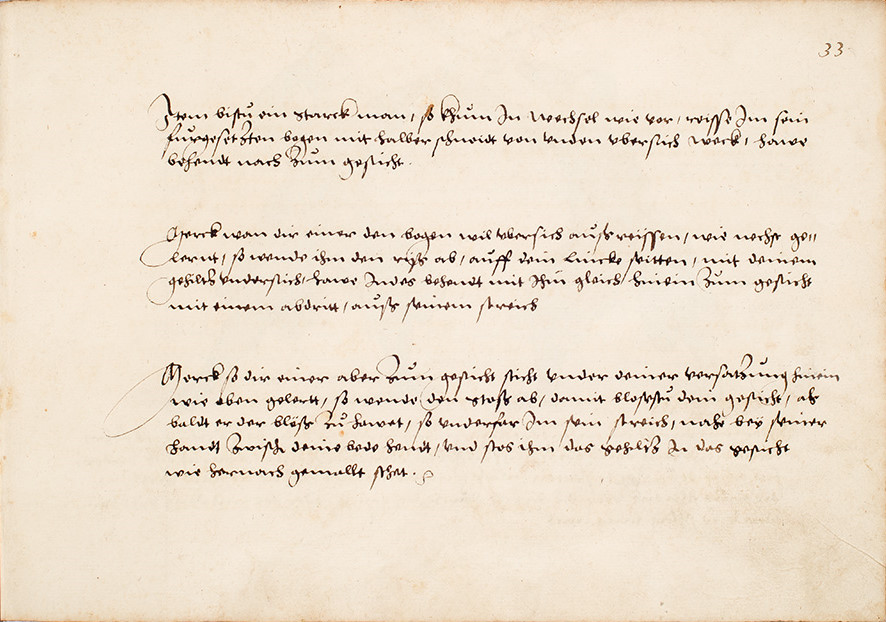 33
Item bistu ein starck man, so khum In wechsel wie vor, reisse Im sein
furgesetzten bogen mit halber schneidt von vnden vbersich weck, hawe
behendt nach zum gesicht.
Merck wan dir einer den bogen wil vbersich außreissen, wie nechst ge„
lernt, so wende ihm den riß ab, auff dein lincke seitten, mit deinem
gehiltz vndersich, hawe Indes behendt mit Ihm gleich hinein zum gesicht
mit einem abdritt, auß seinem streich
Merck so dir einer aber zum gesicht sticht vnder deiner versatzung hinein
wie oben gelertt, so wende den stoss ab, damit blossstu dein gesicht, als
baldt er der blöss zu hawet, so vnderfar Im sein streich, nahe bey seiner
handt zwisch deine bede hendt, vnd stos ihm das gehiltz In das gesicht
wie hernach gemallt sthet.